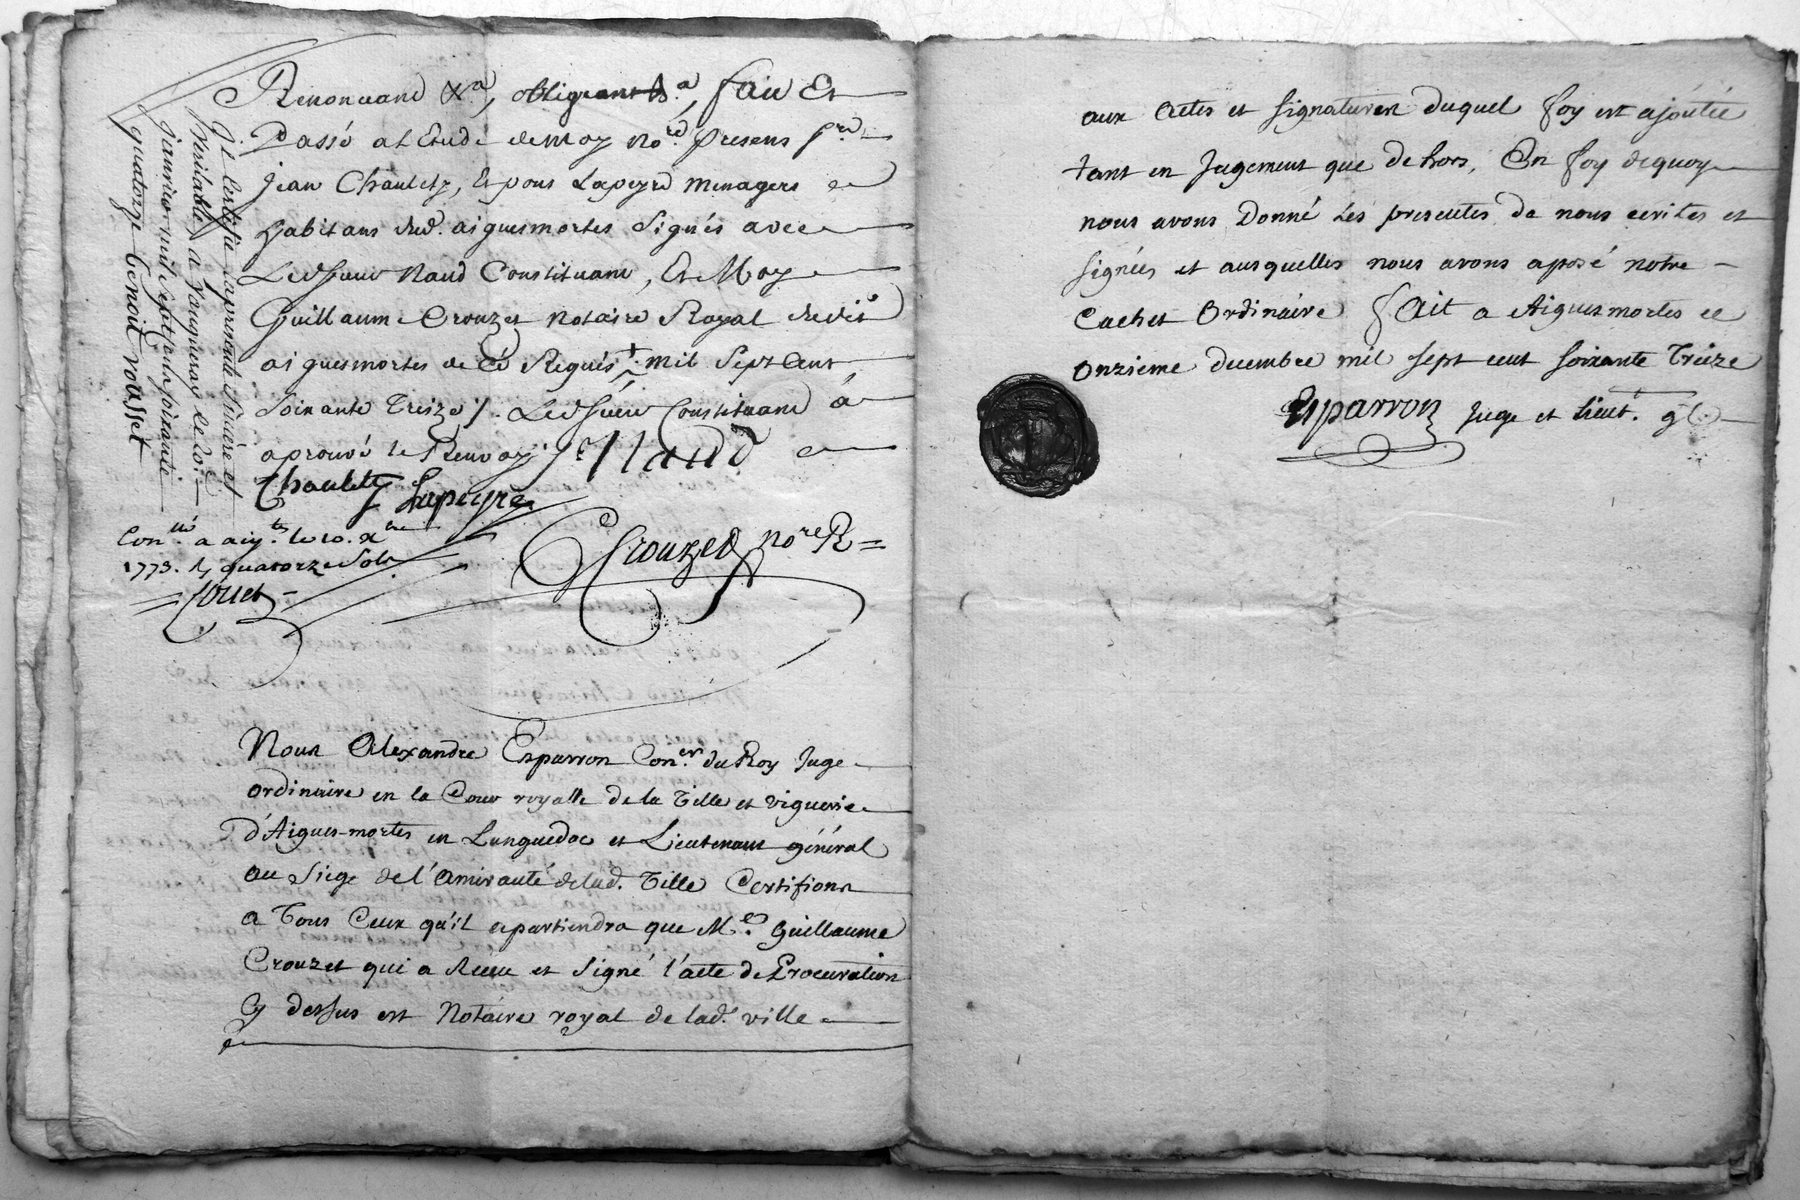 Renonceant &.ª, obligeant &.ª, fait Et
Passé a l'Etude de moy No.re presens S.rs
Jean Chauletz, Espous Lapeyre menagers
habitans dud. aiguesmortes Signés avec
Led. Sieur Naud Constituant, Et Moy
Guillaume Crouzet notaire Royal dud.
aiguesmortes de Ce Requis + mil Sept Cent
Soixante Treize /. Led. Sieur Constituant a
aprouvé le Renvoy Naud
Chauletz Lapeyre
Con.llé a aig.tes le 10. x.bre
1773. R quatorze Sols
Crouzet no.re R
Je Certifie la presente Sincere et
Veritable, a Jonquieres le
janvier mil Sept Cens soixante
quatorze benoit vasset
Nous Alexandre Esparron Con.er du Roy Juge
ordinaire en la Cour royalle de la Ville et viguerie
d'Aigues-mortes en Languedoc et Lieutenant général
au Siege de l'amirauté de lad. Ville Certifions
a Tous Ceux qu'il apartiendra que M.e Guillaume
Crouzet qui a Receu et Signé l'acte de Procuration
Cy dessus est Notaire royal de lad. ville
aux actes et signatures duquel foy est ajoutée
tant en Jugement que dehors, En foy dequoy
nous avons Donné Les presentes de nous ecrites et
signées et ausquelles nous avons aposé notre
Cachet Ordinaire fait a Aiguesmortes ce
onzieme decembre mil sept cent soixante Treize
Esparron Juge et Lieut.t g.l